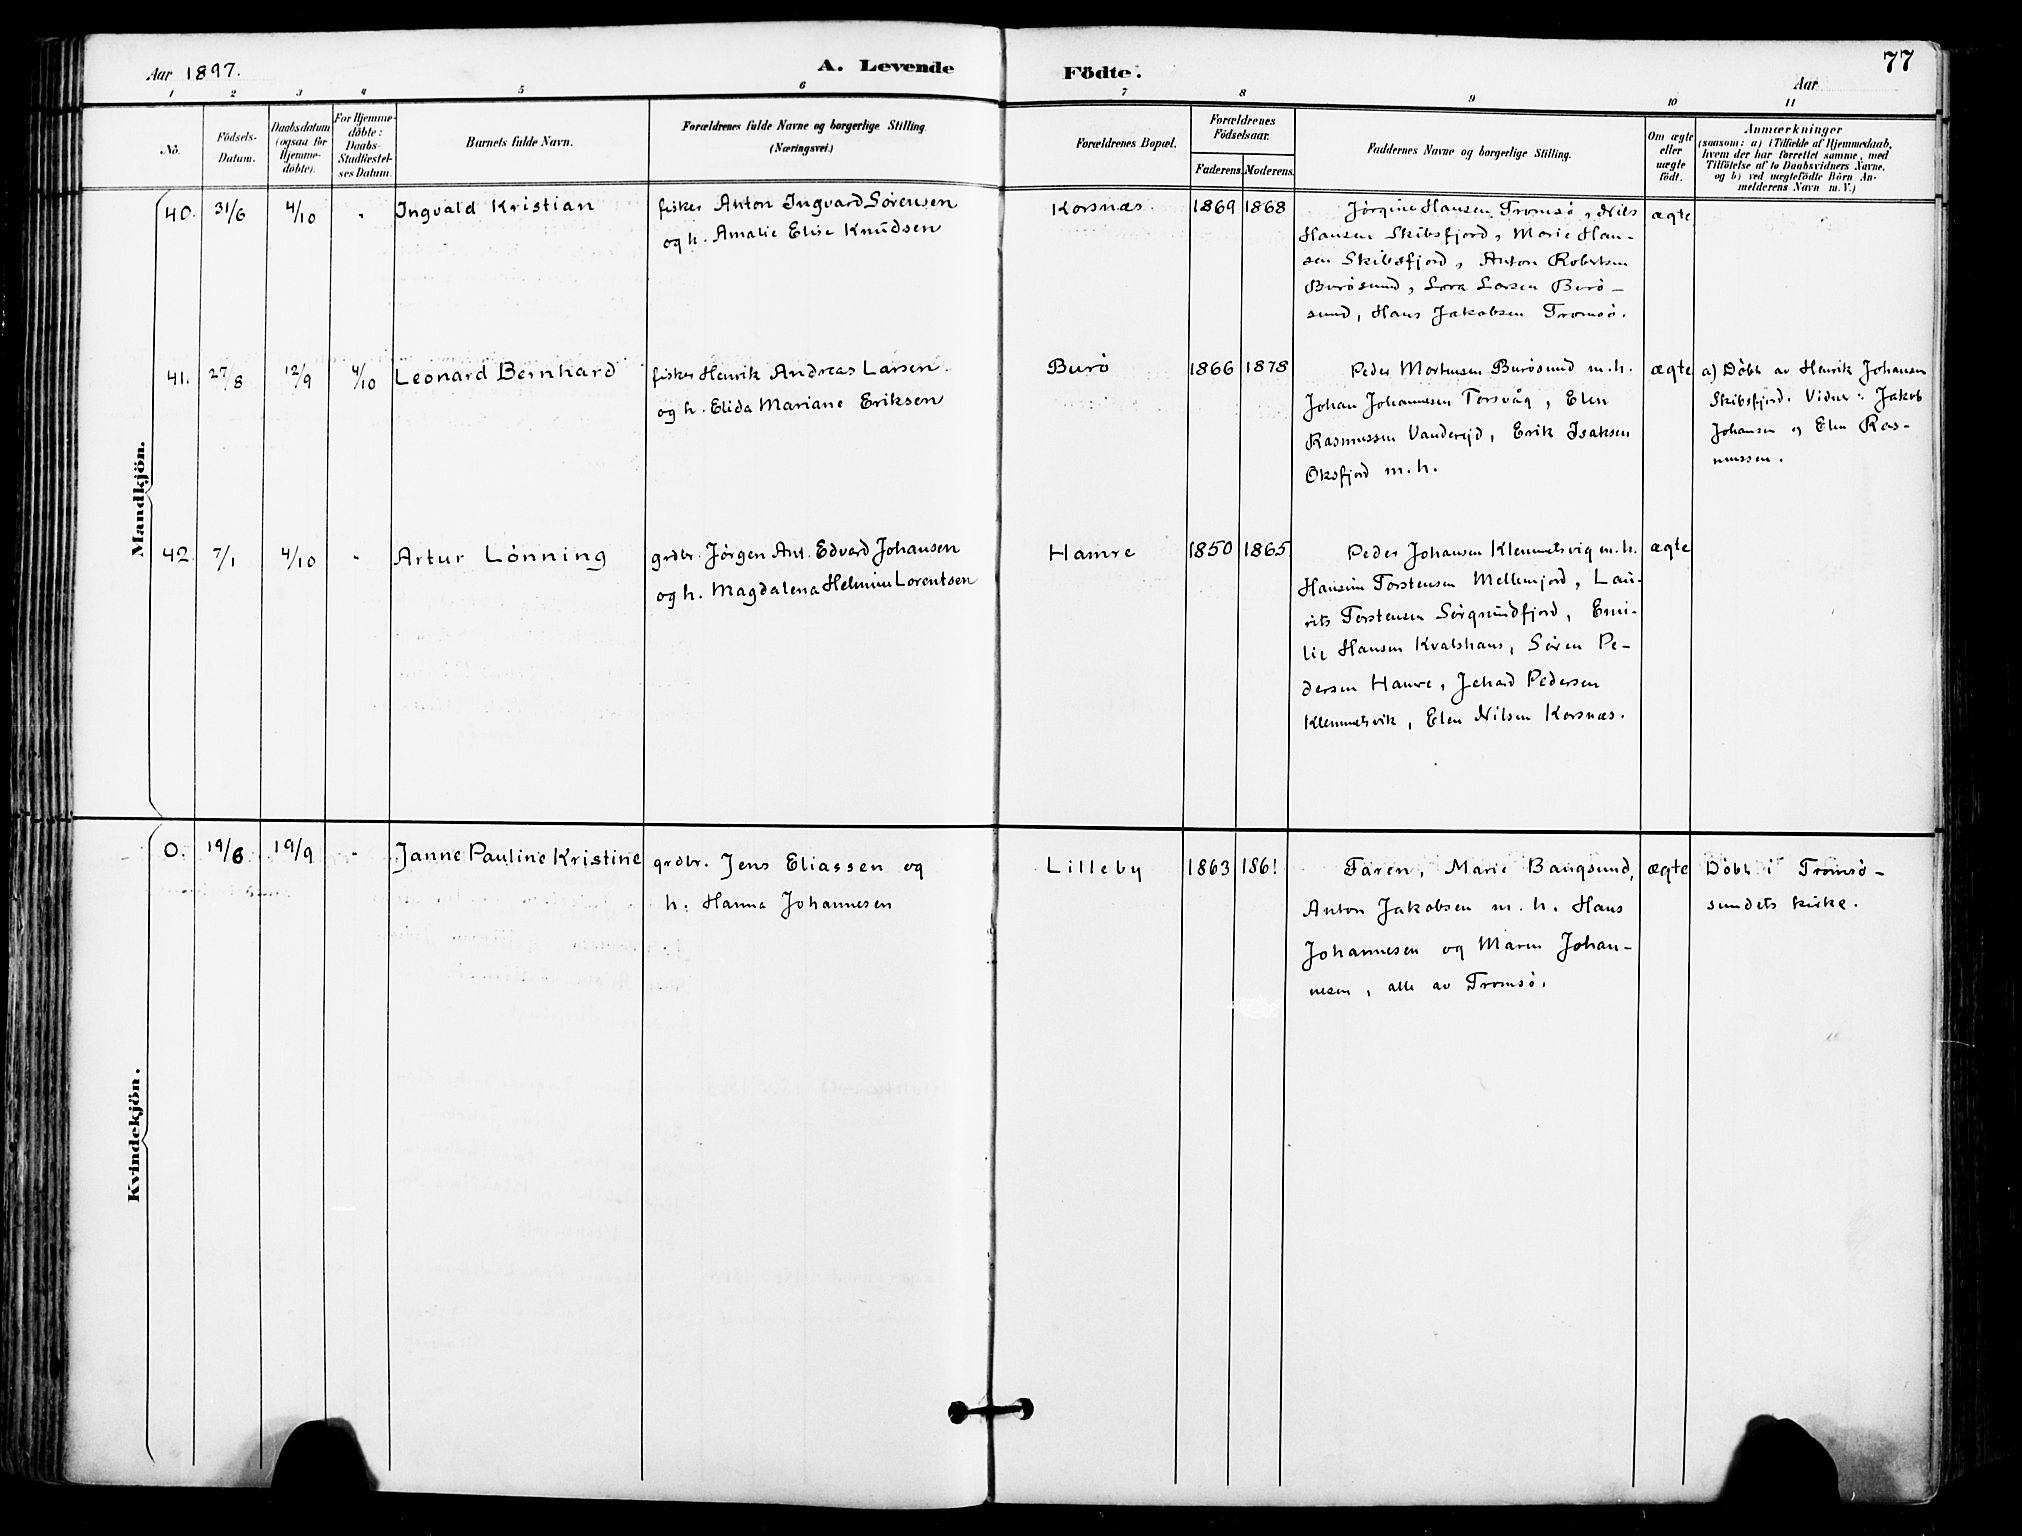 Aar 1897.
A. Levende Födte.
77
Aar
1 2 3 4 5 6 7 8 9 10 11
No.
Födsels-
Datum.
Daabsdatum
(ogsaa for
Hjemme-
döbte).
For Hjemme-
döbte:
Daabs-
Stadfæstel-
ses Datum.
Barnets fulde Navn.
Forældrenes fulde Navne og borgerlige Stilling
(Næringsvei.)
Forældrenes Bopæl.
Forældrenes
Födselsaar.
Faderens. Moderens.
Faddernes Navne og borgerlige Stilling.
Om ægte
eller
uægte
födt.
Anmærkninger
(saasom: a) i Tilfælde af Hjemmedaab,
hvem der har forrettet samme, med
Tilföielse af to Daabsvidners Navne,
og b) ved uægtefödte Börn An-
melderens Navn m. V.)
Mandkjön.
40. 31/6 4/10 " Ingvald Kristian
fisker Anton Ingvard Sørensen
og h. Amalie Elise Knudsen
Korsnæs. 1869 1868
Jørgine Hansen Tromsø, Nils
Hansen Skibsfjord, Marie Han-
sen Skibsfjord, Anton Robertsen
Burøsund, Lora Larsen Burø-
sund, Hans Jakobsen Tromsø.
ægte
41. 27/8 12/9 4/10 Leonard Bernhard
fisker Henrik Andreas Larsen.
og h. Elida Mariane Eriksen
Burø 1866 1878
Peder Mortensen Burøsund m.h.
Johan Johannesen Torsvåg, Elen
Rasmussen Vandereid, Erik Isaksen
Oksfjord m.h.
ægte
a) Døbt av Henrik Johansen
Skibsfjord. Vidner: Jakob
Johansen og Elen Ras-
mussen.
42. 7/1 4/10 " Artur Lønning
grdbr. Jørgen Ant. Edvard Johansen
og h. Magdalena Helmine Lorentsen
Hamre 1850 1865
Peder Johansen Klemmetsvig m.h.
Hansine Torstensen Mellemjord, Lau-
rits Torstensen Sørgrundfjord, Emi-
lie Hansen Kvalshaus, Søren Pe-
dersen Hamre, Jehard Pedersen
Klemmetsvik, Elen Nilsen Korsnæs.
ægte
Kvindekjön.
0. 19/6 19/9 " Janne Pauline Kristine
grdbr. Jens Eliassen og
h. Hanna Johannesen
Lilleby 1863 1861
Faren, Marie Bangsund,
Anton Jakobsen m. h. Hans
Johannesen og Maren Johan-
nesen, alle av Tromsø.
ægte
Døbt i Tromsø-
sundets kirke.